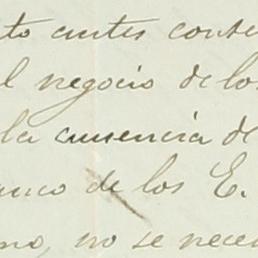 to antes conse
l negocio de los
la ausencia de
nco de los E.
no, no se nece